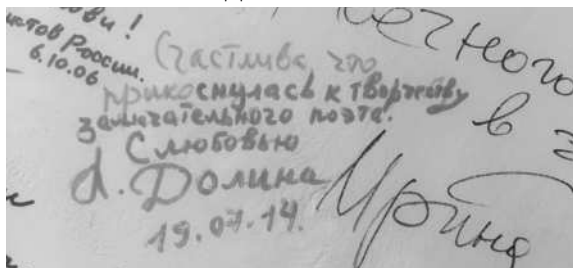 ови!
России.
6.10.06
Счастлива, что
прикоснулась к творчеству
замечательного поэта.
С любовью
Л. Долина
19.07.14.
ечного
в з
Ирина